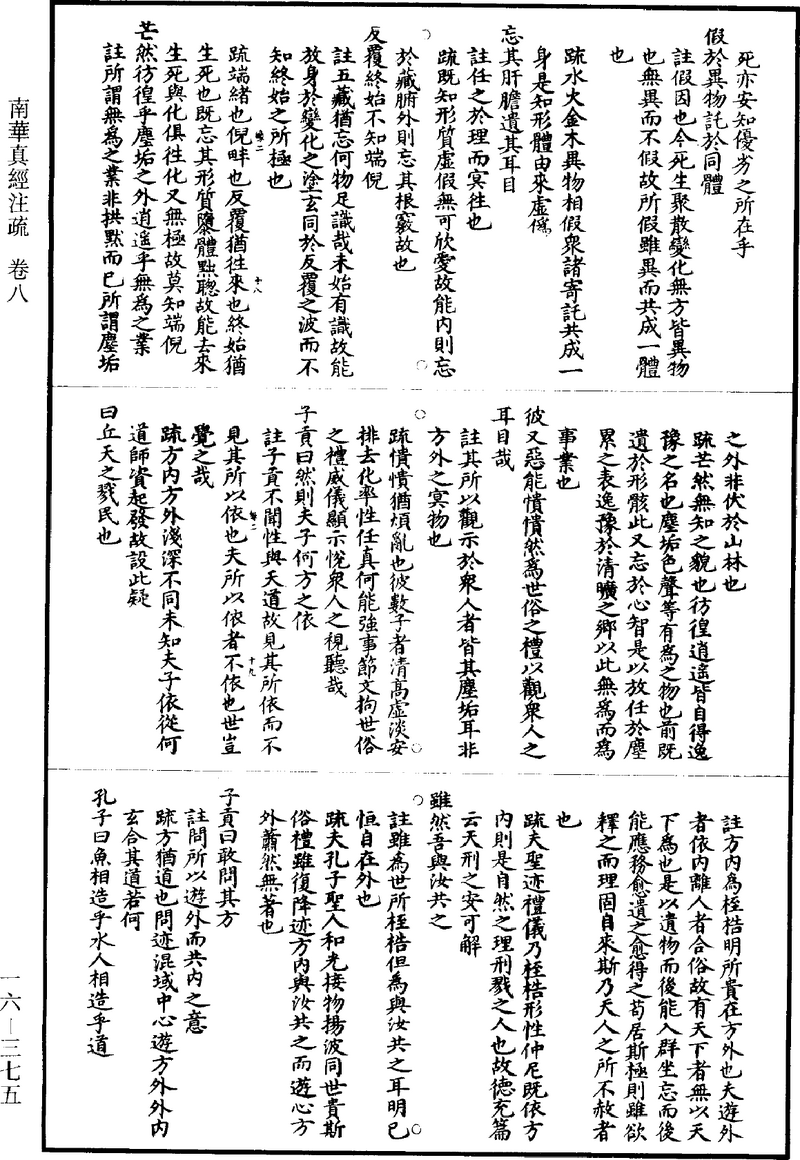 南華真經注疏　卷八
死亦安知優劣之所在乎
假於異物託於同體
註假因也今死生聚散變化無方皆異物
也無異而不假故所假雖異而共成一體
也
疏水火金木異物相假衆諸寄託共成一
身是知形體由來虛僞
忘其肝膽遺其耳目
註任之於理而冥往也
疏既知形質虛假無可欣愛故能內則忘
於藏腑外則忘其根竅故也
反覆終始不知端倪
註五藏猶忘何物足識哉未始有識故能
放身於變化之塗玄同於反覆之波而不
知終始之所極也
疏端緒也倪畔也反覆猶往來也終始猶
生死也既忘其形質隳體黜聰故能去來
生死與化俱往化又無極故莫知端倪
芒然彷徨乎塵垢之外逍遙乎無為之業
註所謂無為之業非拱默而已所謂塵垢
十八
之外非伏於山林也
疏芒然無知之貌也彷徨逍遙皆自得逸
豫之名也塵垢色聲等有為之物也前既
遺於形骸此又忘於心智是以放任於塵
累之表逸豫於清曠之鄉以此無為而為
事業也
彼又惡能憒憒然為世俗之禮以觀衆人之
耳目哉
註其所以觀示於衆人者皆其塵垢耳非
方外之冥物也
疏憒憒猶煩亂也彼數子者清高虛淡安
排去化率性任真何能強事節文拘世俗
之禮威儀顯示悅衆人之視聽哉
子貢曰然則夫子何方之依
註子貢不聞性與天道故見其所依而不
見其所以依也夫所以依者不依也世豈
覺之哉
疏方內方外淺深不同未知夫子依從何
道師資起發故設此疑
曰丘天之戮民也
十九
註方內為桎梏明所貴在方外也夫遊外
者依內離人者合俗故有天下者無以天
下為也是以遺物而後能入群坐忘而後
能應務愈遺之愈得之苟居斯極則雖欲
釋之而理固自來斯乃天人之所不赦者
也
疏夫聖迹禮儀乃桎梏形性仲尼既依方
內則是自然之理刑戮之人也故德充篇
云天刑之安可解
雖然吾與汝共之
註雖為世所桎梏但為與汝共之耳明已
恒自在外也
疏夫孔子聖人和光接物揚波同世貴斯
俗禮雖復降迹方內與汝共之而遊心方
外蕭然無著也
子貢曰敢問其方
註問所以遊外而共內之意
疏方猶道也問迹混域中心遊方外外內
玄合其道若何
孔子曰魚相造乎水人相造乎道
一六—三七五